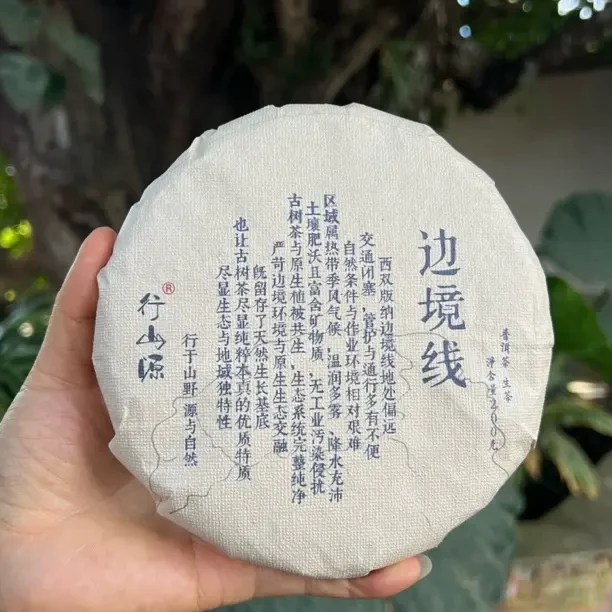 边境线
普洱茶 生茶
净含量:200克
西双版纳边境线地处偏远
交通闭塞 管护与通行多有不便
自然条件与作业环境相对艰难
区域属热带季风气候,温润多雾、降水充沛
土壤肥沃且富含矿物质,无工业污染侵扰
古树茶与原生植被共生,生态系统完整纯净
严苛边境环境与原生生态交融
既留存了天然生长基底
也让古树茶尽显纯粹本真的优质特质
尽显生态与地域独特性
行于山野 源与自然
行山源®